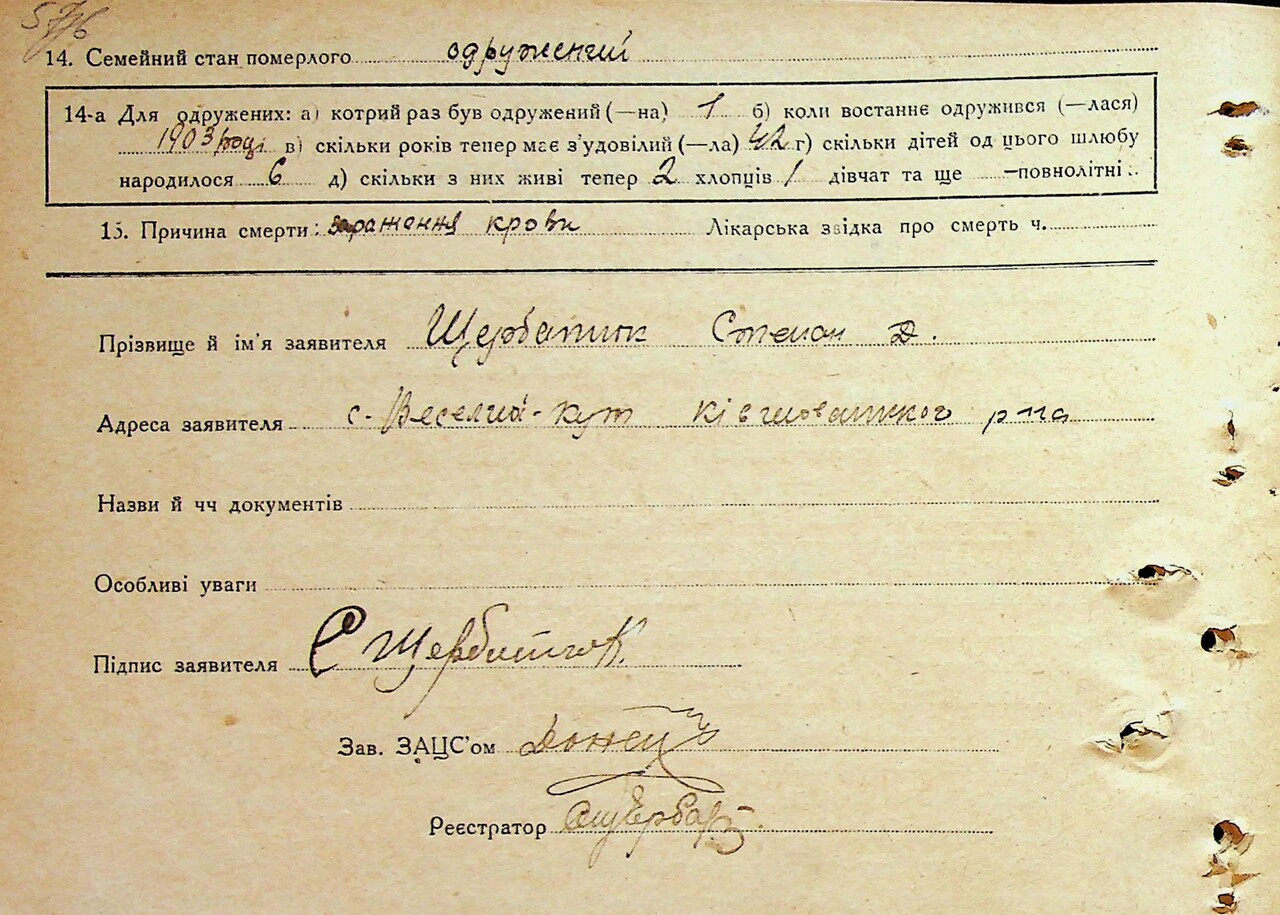 576
14. Семейний стан померлого одружений
14-а Для одружених: а) котрий раз був одружений (—на) 1 б) коли востаннє одружився (—лася)
1903 році в) скільки років тепер має з'удовілий (—ла) 42 г) скільки дітей од цього шлюбу
народилося 6 д) скільки з них живі тепер 2 хлопців 1 дівчат та ще —повнолітні
15. Причина смерти: зараження крови Лікарська звідка про смерть ч.
Прізвище й ім'я заявителя Щербатюк Степан Д.
Адреса заявителя с. Веселий-кут р-на
Назви й чч документів
Особливі уваги
Підпис заявителя С Щербатюк
Зав. ЗАЦС'ом Донець
Реєстратор